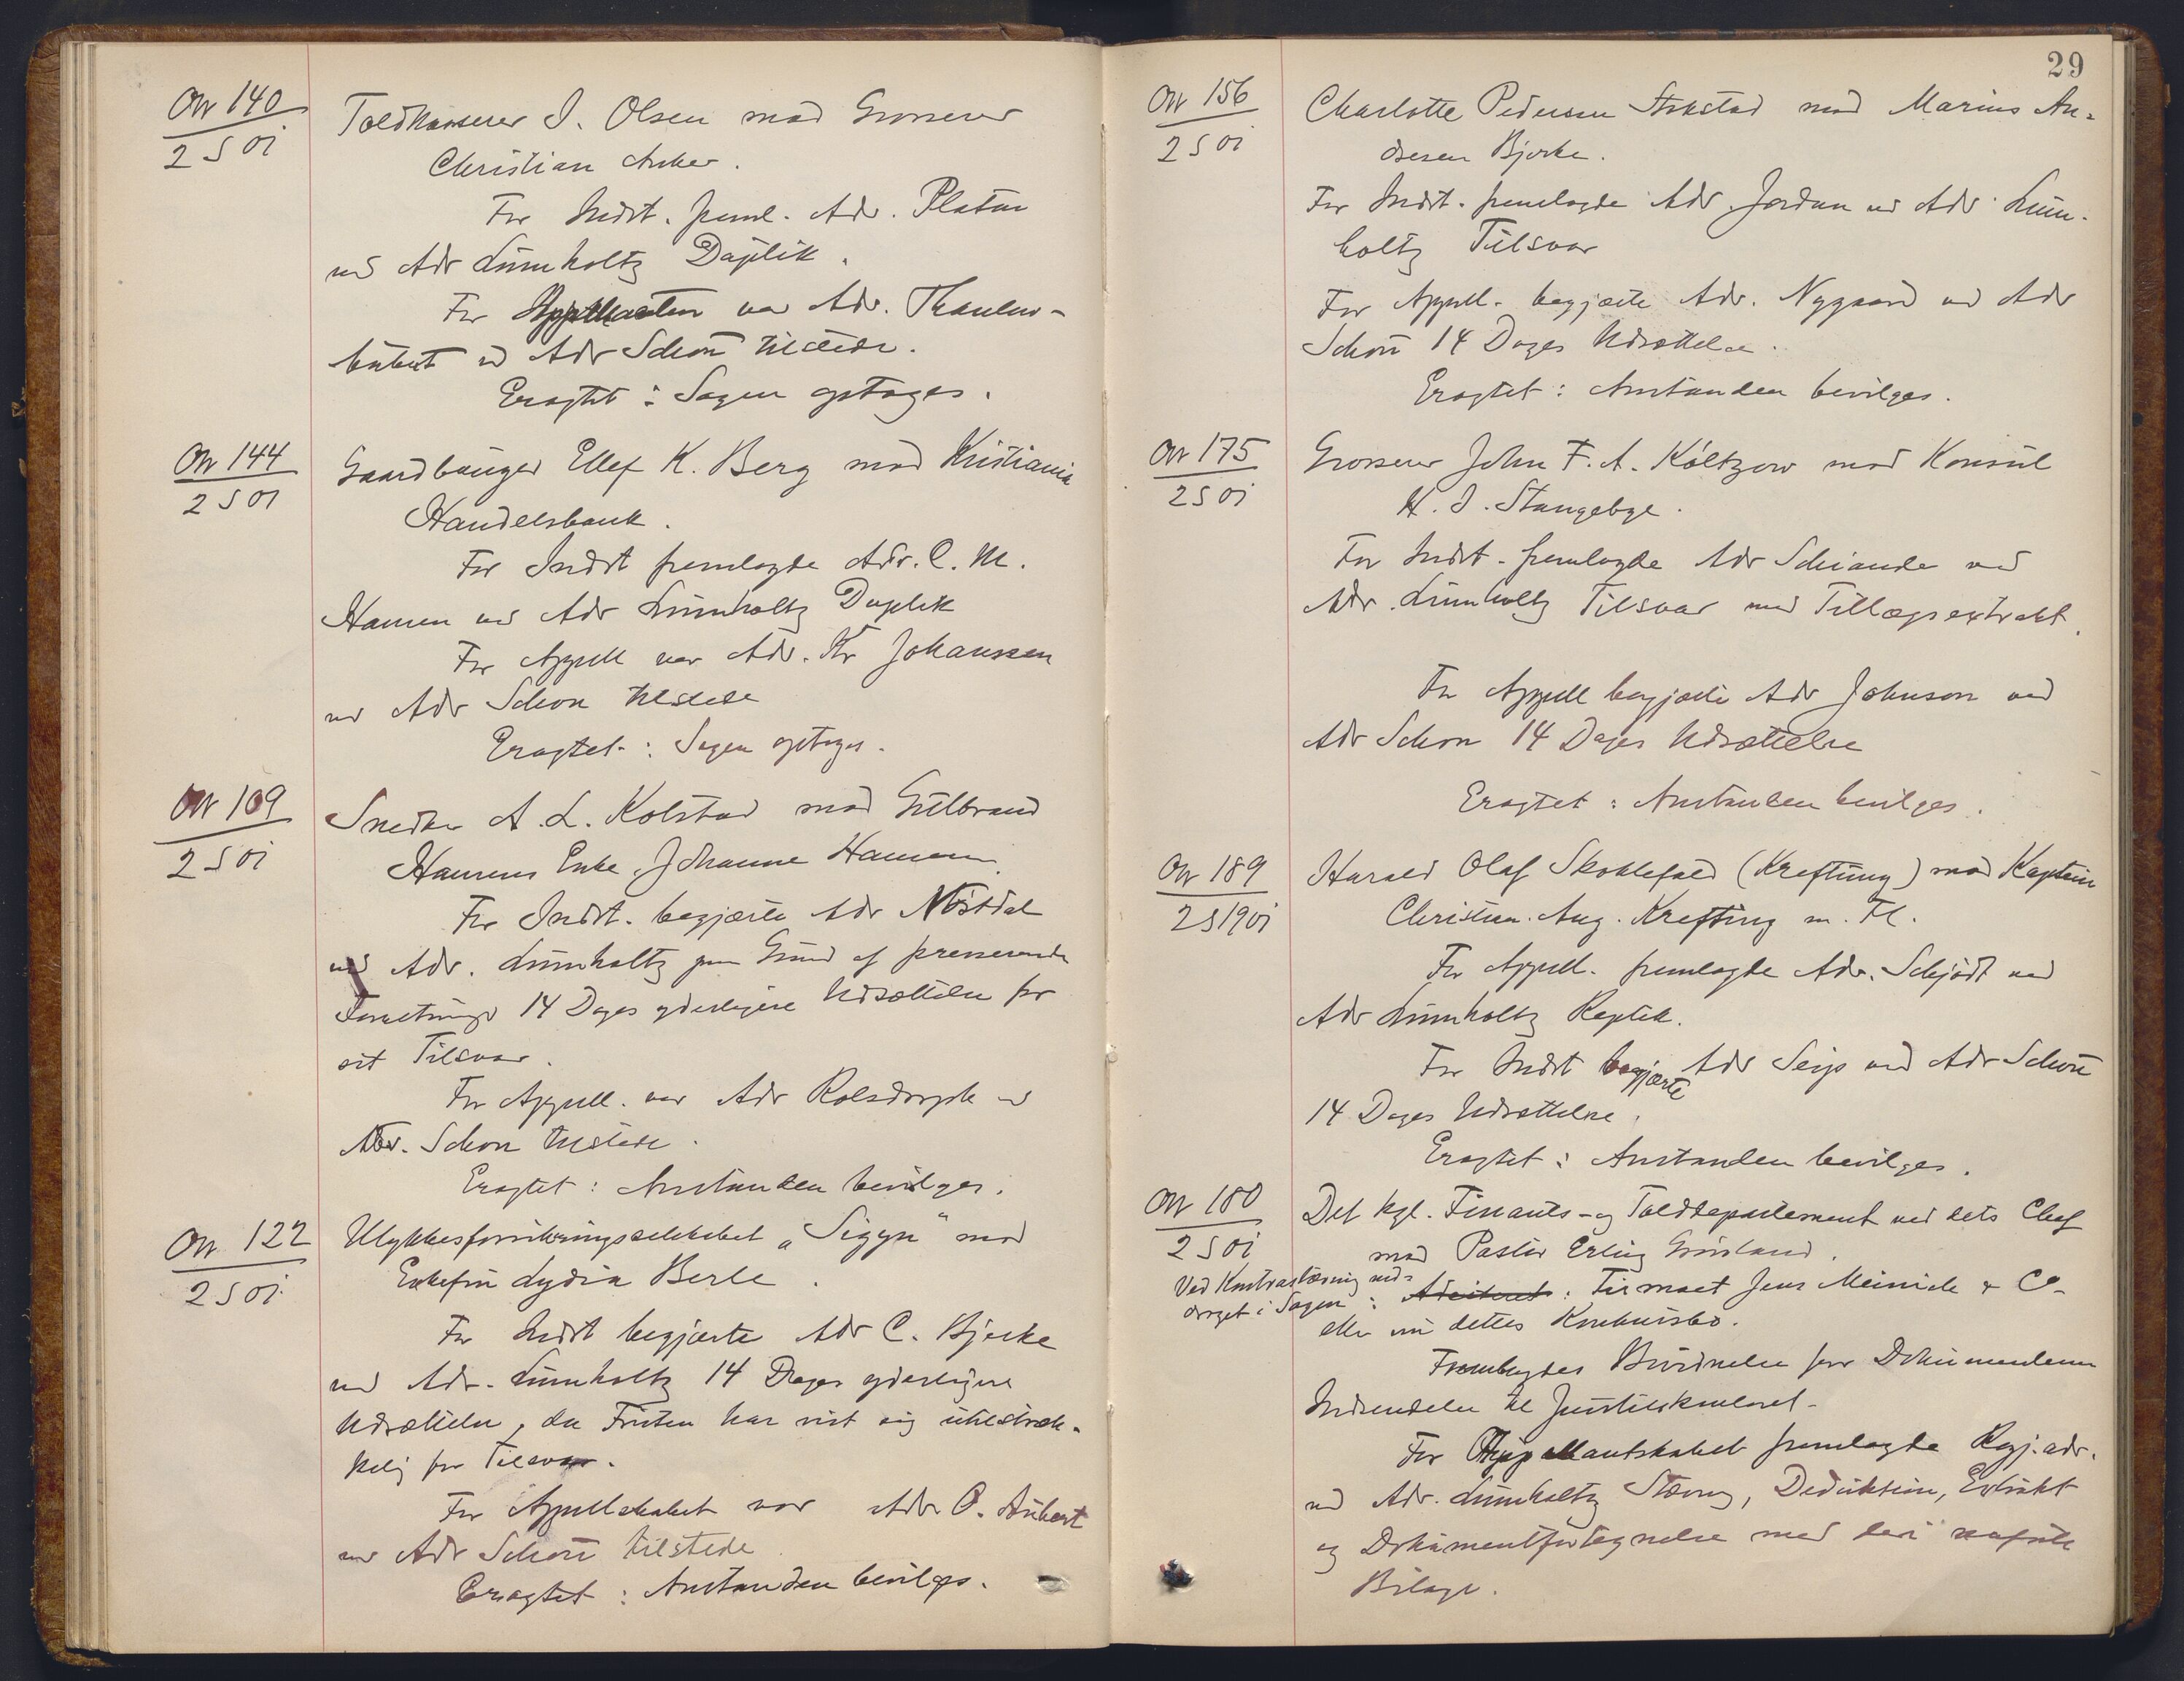 No 140
2 S 01
Toldkasserer I. Olsen mod Grosserer
Christian Anker.
For Indst. freml. Adv. Platou
ved Adv Lumholtz Duplik.
For Appellanten var Adv. Thaulow-
bühert ved Adv Schou tilstede.
Eragtet: Sagen optages.
No 144
2 S 01
Gaardbruger Ellef K. Berg mod Kristiania
Handelsbank.
For Indst fremlagde Adv. C. M.
Hansen ved Adv Lumholtz Duplik
For Appell var Adv. Kr Johanssen
ved Adv Schou tilstede
Eragtet: Sagen optages.
No 109
2 S 01
Snedker A. L. Kolstad mod Gulbrand
Hansens Enke, Johanne Hansen.
For Indst. begjærte Adv Nösdal
ved Adv. Lumholtz paa Grund af presserende
Forretninger 14 Dages yderligere Udsættelse for
sit Tilsvar.
For Appell. var Adv Rolsdorph ved
Adv. Schou tilstede.
Eragtet: Anstanden bevilges.
No 122
2 S 01
Ulykkesforsikringsselskabet "Sigyn" mod
Enkefru Lydia Berle.
For Indst begjærte Adv C. Bjerke
ved Adv. Lumholtz 14 Dages yderligere
Udsættelse, da Fristen har vist sig utilstræk-
kelig for Tilsvar.
For Appellskabet var Adv O. Aubert
ved Adv Schou tilstede
Eragtet: Anstanden bevilges.
29
No 156
2 S 01
Charlotte Pedersen Stokstad mod Marius An-
dresen Bjerke.
For Indst. fremlagde Adv. Jordan ved Adv Lum-
holtz Tilsvar
For Appell. begjærte Adv. Nygaard ved Adv
Schou 14 Dages Udsættelse.
Eragtet: Anstanden bevilges.
No 175
2 S 01
Grosserer John F. A. Költzow mod Konsul
H. I. Stangebye.
For Indst. fremlagde Adv Schiander ved
Adv. Lumholtz Tilsvar med Tillægsextrakt.
For Appell begjærte Adv Johnson ved
Adv Schou 14 Dages Udsættelse
Eragtet: Anstanden bevilges.
No 189
2 S 1901
Harald Olaf Skoklefald (Krefting) mod Kaptein
Christian Aug. Krefting m. Fl.
For Appell. fremlagde Adv. Schjödt ved
Adv Lumholtz Replik.
For Indst begjærte Adv Seip ved Adv Schou
14 Dages Udsættelse.
Eragtet: Anstanden bevilges.
No 180
2 S 01
Det kgl. Finants- og Tolddepartement ved dets Chef
mod Pastor Erling Grönland.
Ved Kontrastævning ind-
draget i Sagen: Adciteret: Firmaet Jens Meinich & Co
eller nu dettes Konkursbo.
Fremlagdes Bevidnelse for Dokumenternes
Indsendelse til Justitskontoret.
For Appellantskabet fremlagde Regj.adv.
ved Adv. Lumholtz Stævning, Deduktion, Extrakt
og Dokumentfortegnelse med deri
Bilage.